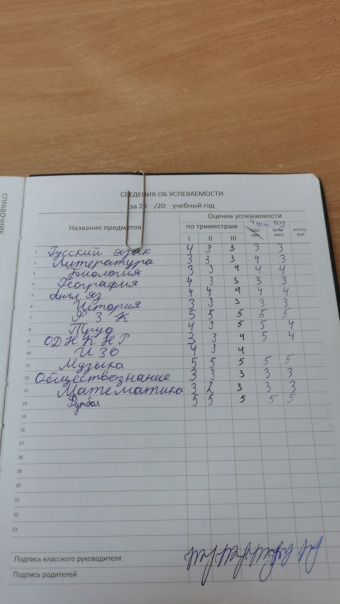 СВЕДЕНИЯ ОБ УСПЕВАЕМОСТИ
за 20 /20 учебный год
Название предметов
Оценка успеваемости
по триместрам
I II III
1 Русский язык 4 3 3 3 3
2 Литература 3 3 3 4 3
3 Биология 3 3 4 4 4
4 География 4 3 3 3 3
5 Англ яз 4 4 4 4 4
6 История 3 3 3 3 3
7 Ф З К 5 5 5 5 5
8 Труд 4 3 5 5 4
9 ОДНКНР 3 3 4 5 4
10 ИЗО 4 3 4
11 Музыка 5 5 5 5 5
12 Обществознание 3 3 3 3 3
13 Математика 3 2 3 3 3
14 5 5 5 5 5
15
16
17
18
19
20
21
22
23
Подпись классного руководителя
Подпись родителей
СПРАВОЧНИК